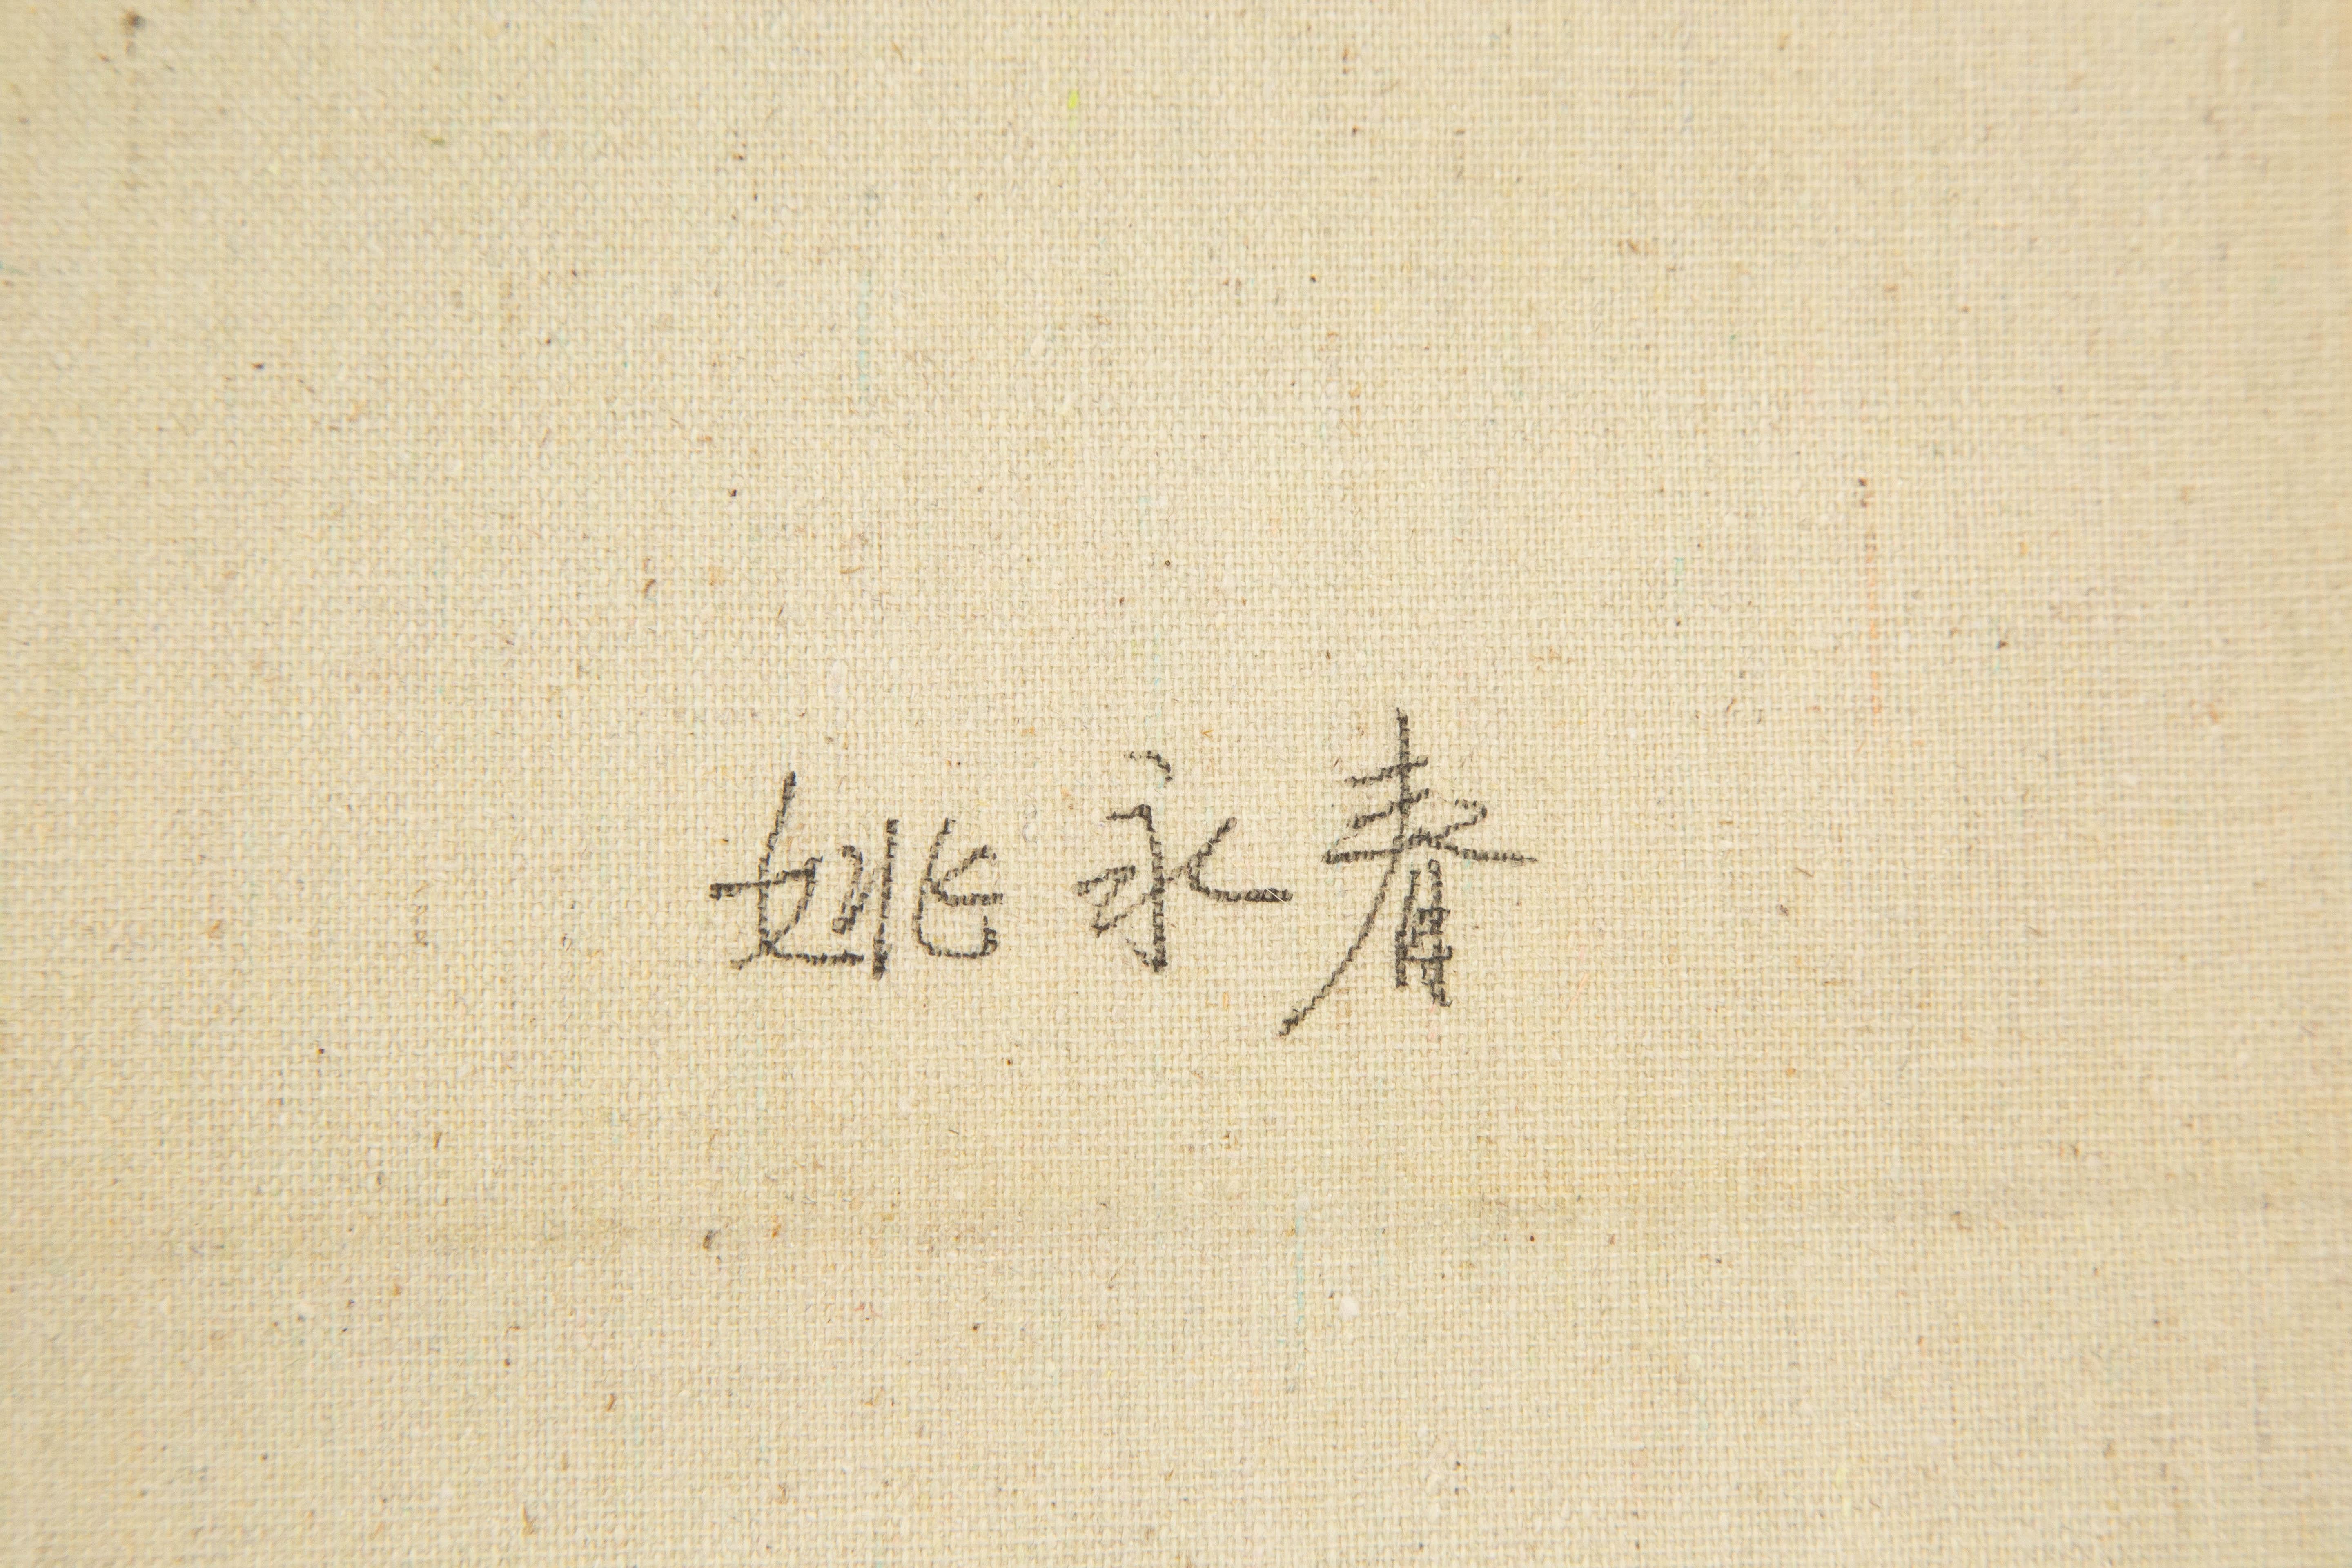 姚永春